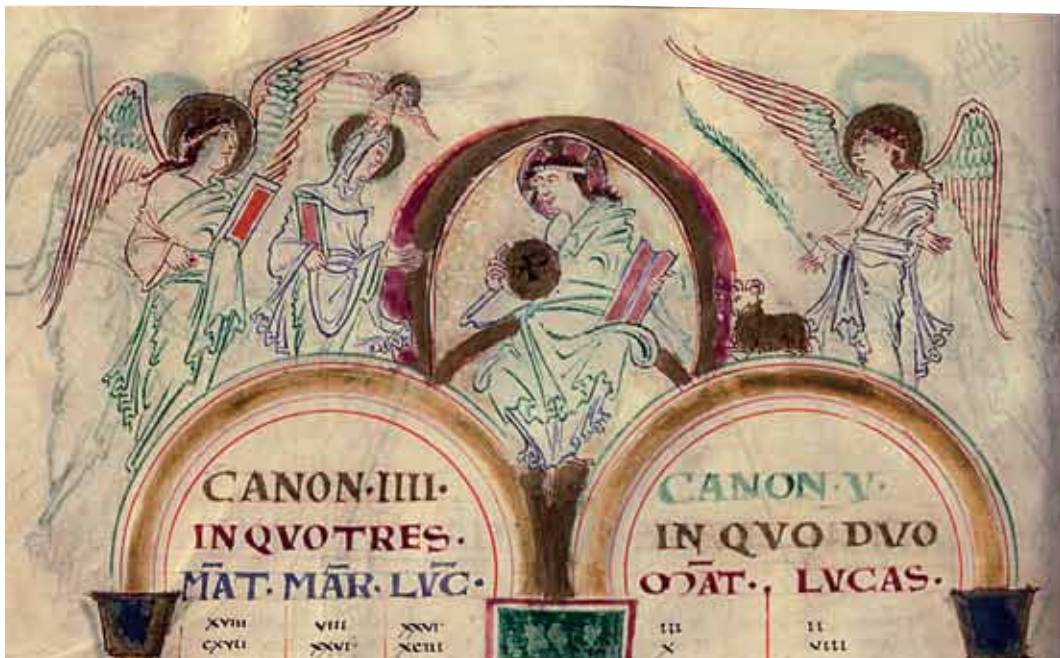 CANON·IIII·
INQVOTRES·
M̄AT· MĀR· LV̄C·
xviii viii xxvi
cxvii xxvi xciii
CANON·V·
IN QVO DVO
MĀT·, LVCAS·
iii ii
x viii